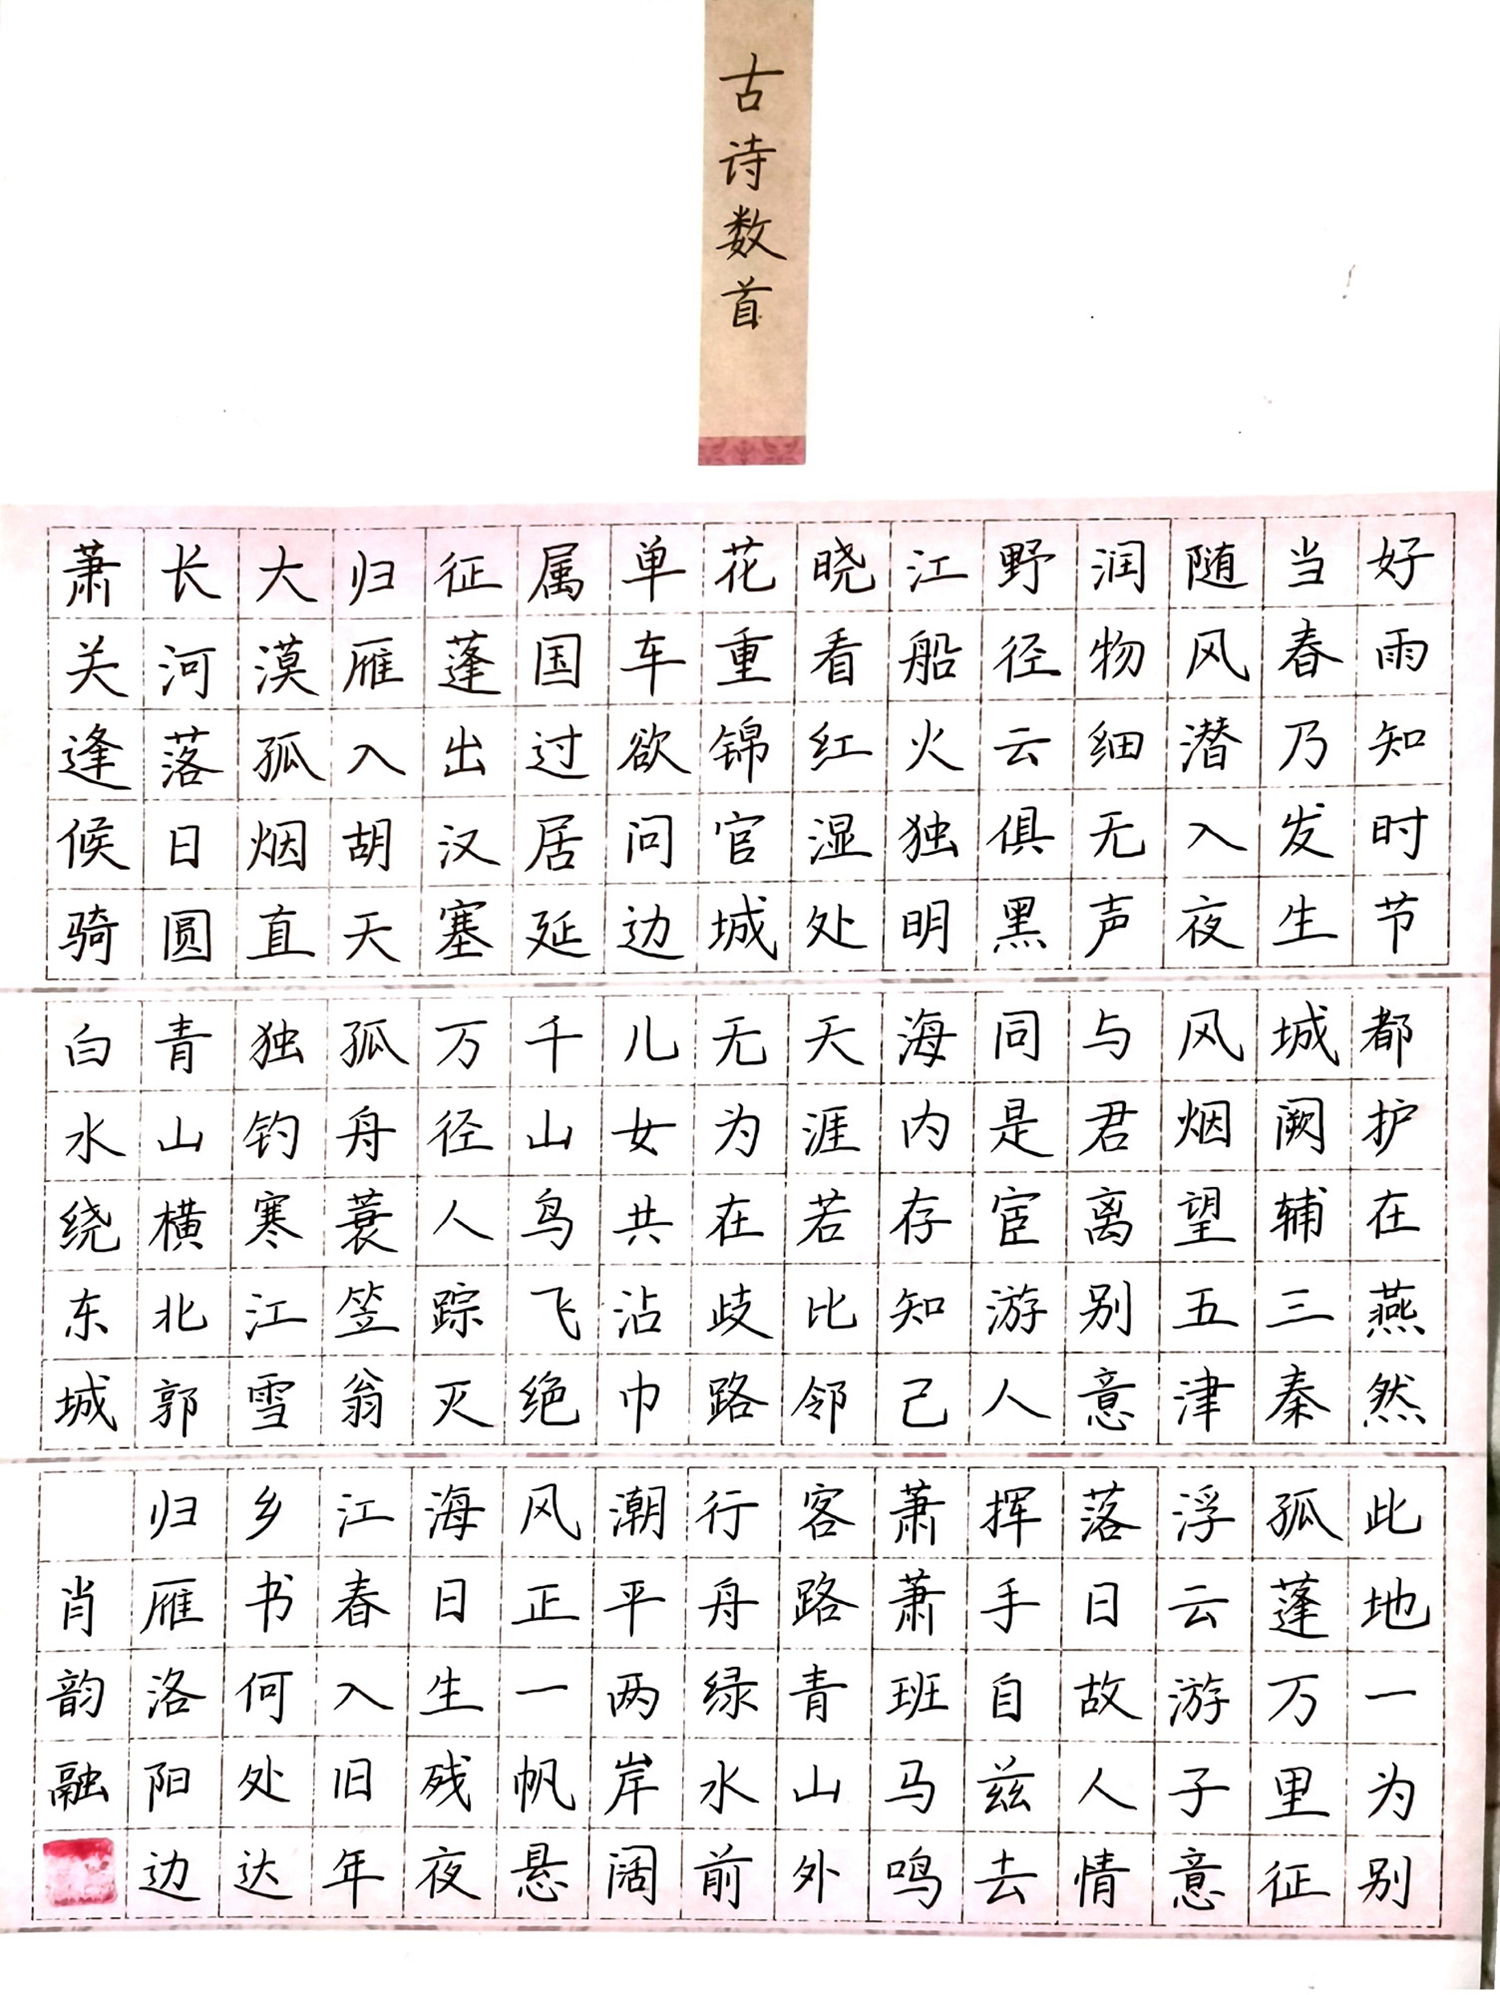 古诗数首
好雨知时节
当春乃发生
随风潜入夜
润物细无声
野径云俱黑
江船火独明
晓看红湿处
花重锦官城
单车欲问边
属国过居延
征蓬出汉塞
归雁入胡天
大漠孤烟直
长河落日圆
萧关逢候骑
都护在燕然
城阙辅三秦
风烟望五津
与君离别意
同是宦游人
海内存知己
天涯若比邻
无为在歧路
儿女共沾巾
千山鸟飞绝
万径人踪灭
孤舟蓑笠翁
独钓寒江雪
青山横北郭
白水绕东城
此地一为别
孤蓬万里征
浮云游子意
落日故人情
挥手自兹去
萧萧班马鸣
客路青山外
行舟绿水前
潮平两岸阔
风正一帆悬
海日生残夜
江春入旧年
乡书何处达
归雁洛阳边
肖韵融